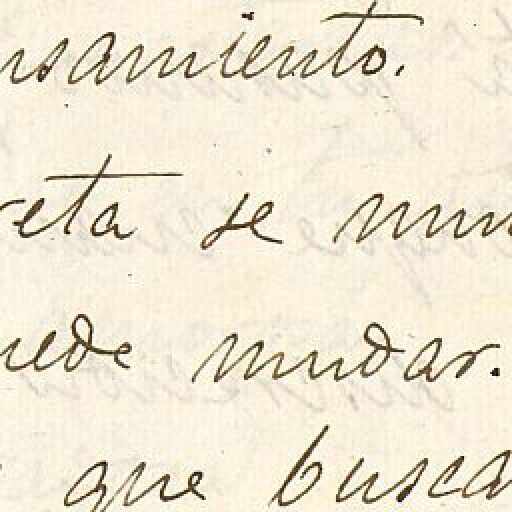 nsamiento.
reta se mun
uede mudar.
que busca